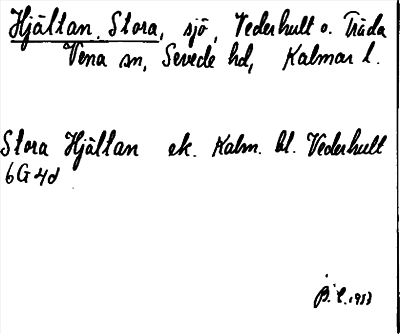 Hjältan, Stora, sjö, Vederhult o. Träda
Vena sn, Sevede hd, Kalmar l.
Stora Hjältan ek. Kalm. bl. Vederhult
6G4d
1933